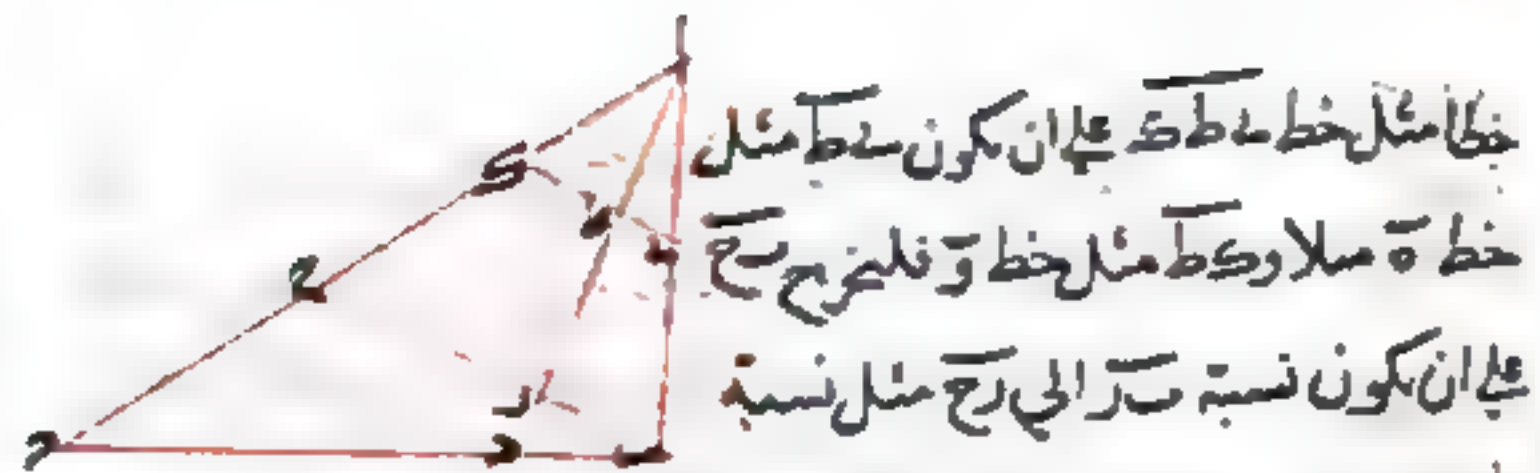 خطا مثل خط ى ط ك على ان يكون ى ط مثل
خط ه مثلا و ك ط مثل خط و فلنخرج ى رح
على ان يكون نسبة ى ر الى رح مثل نسبة
ا
ك
ط
ح
ر
ح د ب